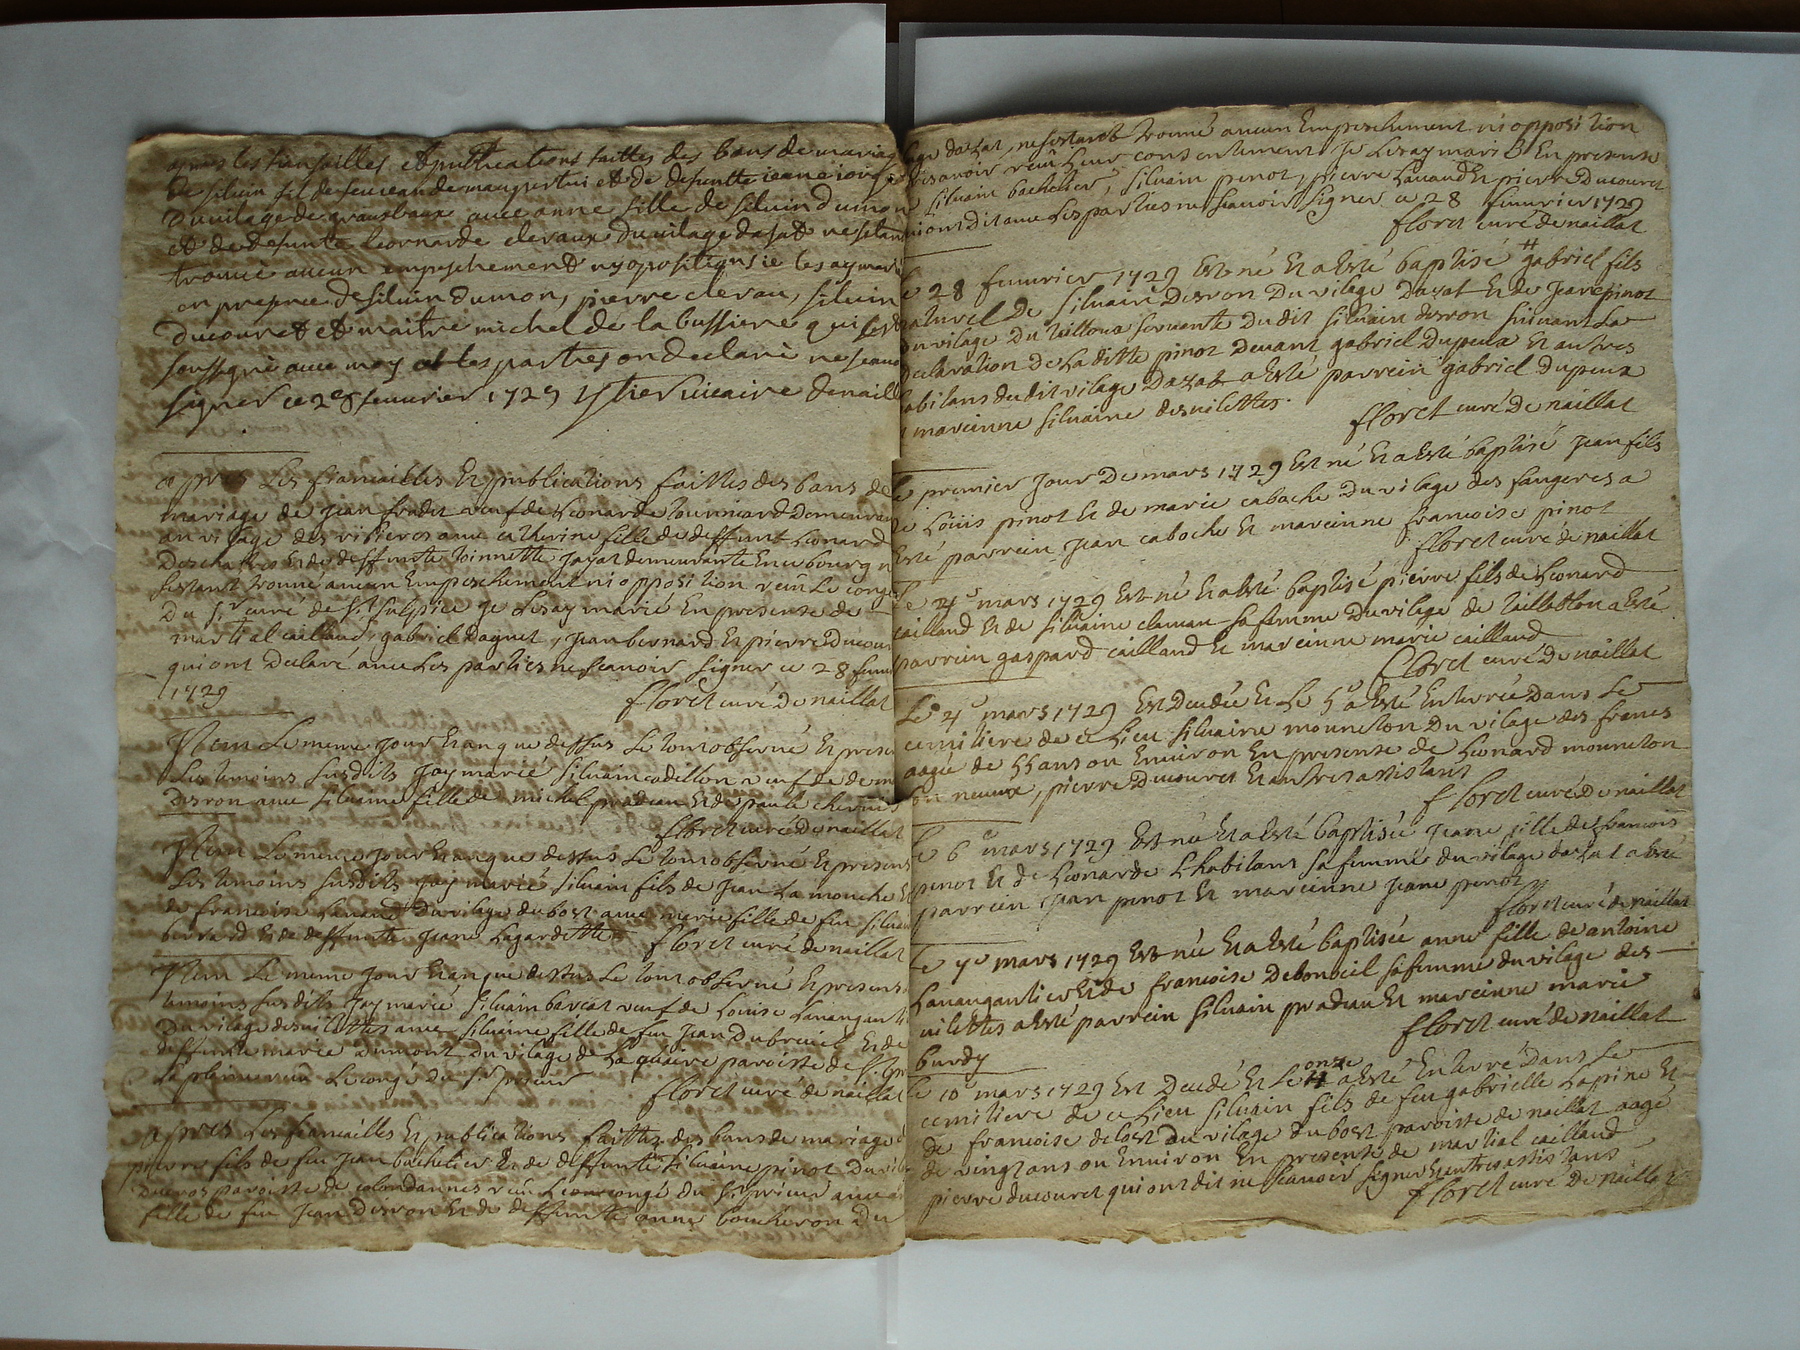 apres les fiansailles et publications faittes des bans de mariag
de siluin fil de feu jean de maupertui et de defuntte jeanne
du uilage de grausbaux auec anne fille de siluin dumon
et de defunte leornarde cleraux du uilage dasat ne setan
trouué aucun empeschement ny opositions ie les ay marié
en presence de siluin dumon, pierre clerau, siluin
ducouret et maitre michel de la bussiere qui sest
soussigné auec moy et les parties on declaré ne scauo
signer ce 28 feuurier 1729 uicaire de naill
apres Les fiancailles Et publications faittes des bans de
mariage de jean fradet veuf de Leonarde tourniard demeurant
au village des rissieres auec catherine fille de deffunt Leonard
Deschastres et de deffunte toinnette jayat demeurante En ce bourg n
sestant trouué aucun Empeschement ni opposition reçu Le congé
Du sr curé de st sulpice je Lesay marié En presense de
martial caillaud, gabriel daguet, jean bernard Et pierre ducour
qui ont declaré auec Les parties ne scauoir signer ce 28 feuu
1729 floret curé de naillat
Item Le meme jour Et an que dessus Le tout obserué Et presen
Les temoins susdits jay marié siluain codillon veuf de
desron auec siluaine fille de michel pradeau Et de paule
floret curé de naillat
Item Le meme jour Et an que dessus Le tout obserué Et presens
Les temoins susdits jay marié siluain fils de jean La mouche Et
de francoise du vilage du bost auec marie fille de feu siluain
bernard Et de deffunte jeane Lagardette floret curé de naillat
Item Le meme jour Et an que dessus Le tout obserué Et presens
temoins susdits jay marié siluain barcat veuf de Louise Lanaugautie
du vilage des uilettes auec siluaine fille de feu jean Dubreuil Et de
deffunte marie dumont du vilage de La paroisse de st
la plaine reçu Le congé du sr prieur floret curé de naillat
apres Les fiancailles Et publications faittes des bans de mariage
pierre fils de feu jean bachelier Et de deffunte siluaine pinot du vil
ducros paroisse de colondannes reçu Le congé du sr prieur auec
fille de feu jean desron Et de deffunte anne boucheron du
vilage dazat, ne sestant trouué aucun Empeschement ni opposition
apres avoir reçu Leur consentement je Lesay marié En presense
de siluain bachelier, siluain pinot, pierre Et pierre ducouret
qui ont dit auec Les parties ne scauoir signer ce 28 feuurier 1729
floret curé de naillat
Le 28 feuurier 1729 Est né Et a Esté baptisé gabriel fils
naturel de siluain desron du vilage dazat Et de jane pinot
du vilage du tailloux seruante dudit siluain desron suiuant La
declaration de La ditte pinot deuant gabriel dupeux Et autres
abitans dudit vilage dazat a Esté parrein gabriel dupeux
Et marcinne siluaine desuilettes.
floret curé de naillat
Le premier jour de mars 1729 Est né Et a Esté baptisé jean fils
de Loüis pinot Et de marie caboche du vilage des fougeres a
Esté parrein jean caboche Et marcinne francoise pinot
floret curé de naillat
Le 4e mars 1729 Est né Et a Esté baptisé pierre fils de Leonard
caillaud Et de siluaine clauau sa femme du vilage de a Esté
parrein gaspard caillaud Et marcinne marie caillaud
floret curé de naillat
Le 4e mars 1729 Est decedée Et Le 5e a Esté Enterrée dans Le
cemitiere de ce Lieu siluaine moureton du vilage des francs
aagée de 55 ans ou Enuiron En presense de Leonard moureton
son neueux, pierre ducouret Et autres assistans
floret curé de naillat
Le 6e mars 1729 Est née Et a Esté baptisée jeane fille de francois
pinot Et de Leonarde Lhabitans sa femme du vilage dazat a Esté
parrein jean pinot Et marcinne jeane pinot
floret curé de naillat
Le 7e mars 1729 Est née Et a Esté baptisée anne fille de antoine
Lanaugautier Et de francoise deboueil sa femme du vilage des
uilettes a Esté parrein siluain pradeau Et marcinne marie
burdy floret curé de naillat
Le 10e mars 1729 Est decedé Et Le onze a Esté Enterré dans Le
cemitiere de ce Lieu siluain fils de feu gabrielle Lapine Et
de francoise delost du vilage du bost paroisse de naillat aagé
de vingt ans ou Enuiron En presense de martial caillaud
pierre ducouret qui ont dit ne scauoir signer Et autres assistans
floret curé de naillat